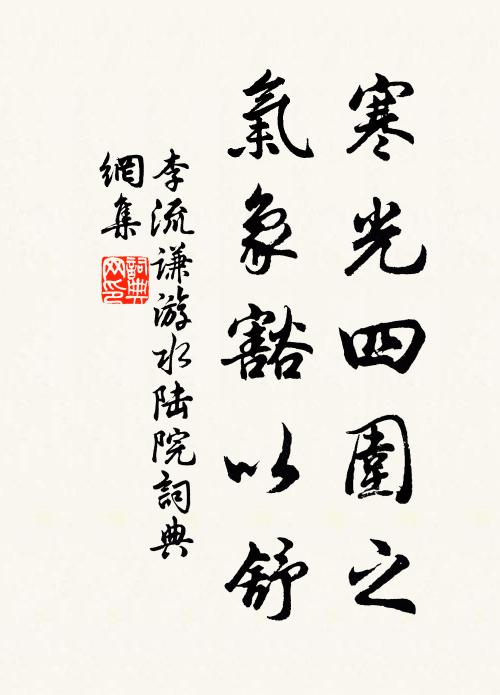 寒光四圍之
氣象豁以舒
李流谦游水陆院詞典
網集
詞典網印